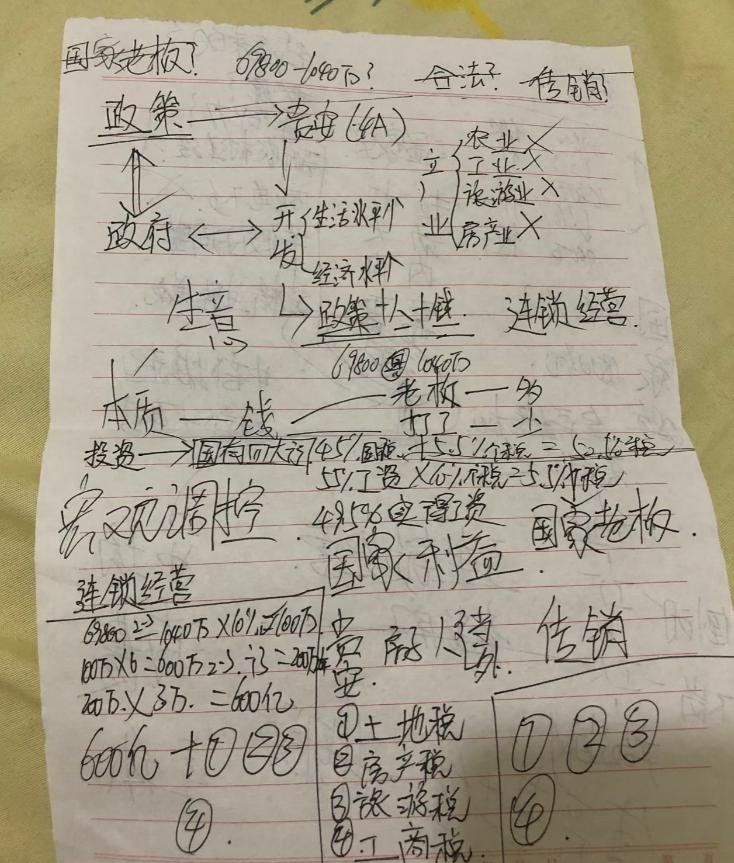 国家老板? 69800-1040万? 合法? 传销?
政策 → 贵安(4A)
农业×
工业×
旅游业×
房产业×
立业
政府 ↔ 开发 生活水平↑
经济水平↑
生意 政策+人+钱 连锁经营.
69800 1040万
本质 — 钱 老板 — 多
打工 — 少
投资 → 国有四大行 45%国税 +5.5%个税 = 50.5%
55%工资×10%个税=5.5%个税
宏观调控 49.5%实得工资
国家利益 国家老板.
连锁经营
69800 2-3 1040万×10% 100万
100万×6=600万 2-3. =200万/年
200万×3万.=600亿
600亿+①②③
④.
贵安. 房子 人 传销
①土地税
②房产税
③旅游税
④工商税
①②③
④.